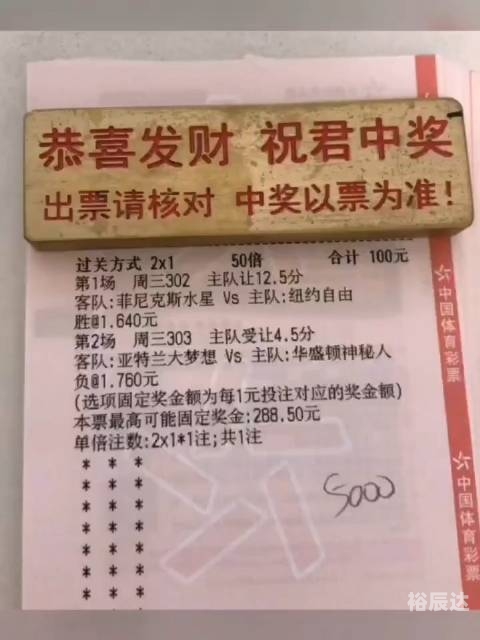 恭喜发财 祝君中奖
出票请核对 中奖以票为准!
过关方式 2x1 50倍 合计 100元
第1场 周三302 主队让12.5分
客队:菲尼克斯水星 Vs 主队:纽约自由
胜@1.640元
第2场 周三303 主队受让4.5分
客队:亚特兰大梦想 Vs 主队:华盛顿神秘人
负@1.760元
(选项固定奖金额为每1元投注对应的奖金额)
本票最高可能固定奖金:288.50元
单倍注数:2x1*1注;共1注
* * *
* * *
* * *
* * *
* * *
* * *
* * *
* * *
5000
中国体育彩票
中国体育彩票
裕辰达